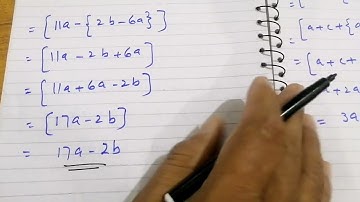 = [11a - {2b - 6a}]
= [11a - 2b + 6a]
= [11a + 6a - 2b]
= [17a - 2b]
= 17a - 2b
= [a + c + {a
= [a + c +
+ 2a
= 3a